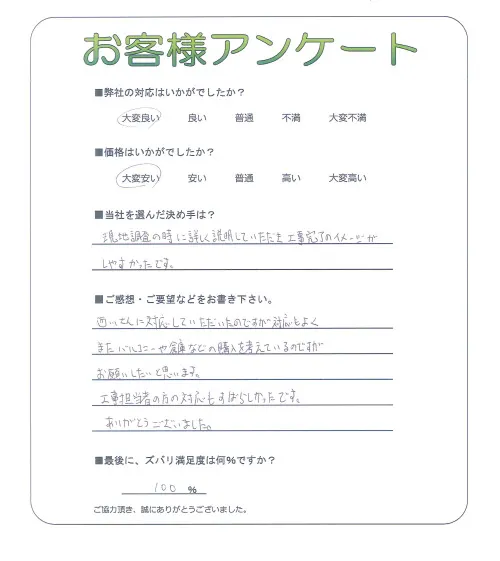 お客様アンケート
■弊社の対応はいかがでしたか？
大変良い 良い 普通 不満 大変不満
■価格はいかがでしたか？
大変安い 安い 普通 高い 大変高い
■当社を選んだ決め手は？
現地調査の時に詳しく説明していただき工事完了のイメージが
しやすかったです。
■ご感想・ご要望などをお書き下さい。
さんに対応していただいたのですが対応もよく
またバルコニーや倉庫などの購入を考えているのですが
お願いしたいと思います。
工事担当者の方の対応もすばらしかったです。
ありがとうございました。
■最後に、ズバリ満足度は何％ですか？
100 %
ご協力頂き、誠にありがとうございました。